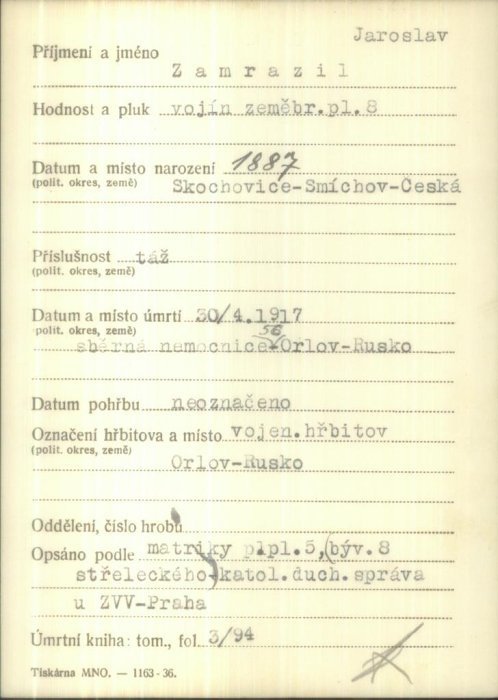 Jaroslav
Příjmení a jméno
Zamrazil
Hodnost a pluk vojín zeměbr.pl.8
Datum a místo narození 1887
(polit. okres, země) Skochovice-Smíchov-Česká
Příslušnost táž
(polit. okres, země)
Datum a místo úmrtí 30/4.1917
polit. okres, země) 56
sběrná nemocnice-Orlov-Rusko
Datum pohřbu neoznačeno
Označení hřbitova a místo vojen.hřbitov
(polit. okres, země)
Orlov-Rusko
Oddělení, číslo hrobu
Opsáno podle matriky p.pl.5,(býv.8
střeleckého)katol.duch.správa
u ZVV-Praha
Úmrtní kniha: tom., fol. 3/94
Tiskárna MNO. — 1163-36.